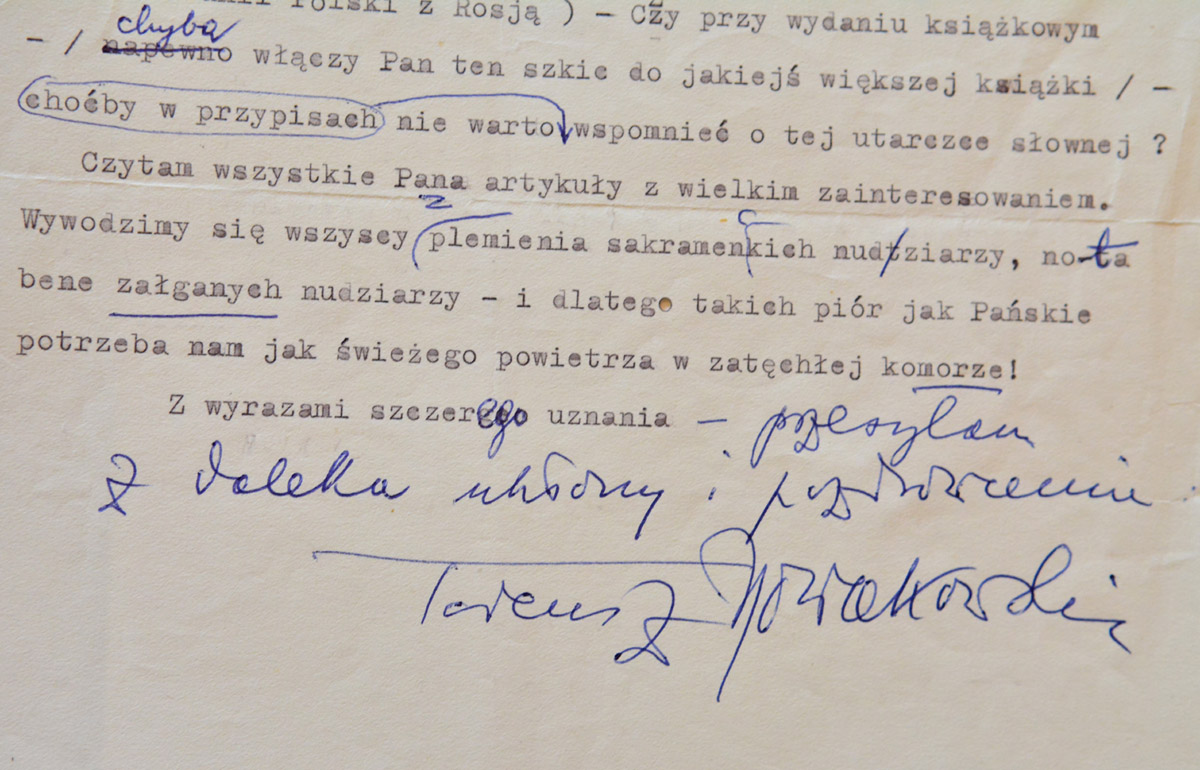 Polski z Rosją ) - Czy przy wydaniu książkowym
chyba
- / napewno włączy Pan ten szkic do jakiejś większej książki / -
choćby w przypisach nie warto wspomnieć o tej utarczce słownej ?
Czytam wszystkie Pana artykuły z wielkim zainteresowaniem.
z
Wywodzimy się wszyscy plemienia sakramenckich nudziarzy, nota
bene załganych nudziarzy - i dlatego takich piór jak Pańskie
potrzeba nam jak świeżego powietrza w zatęchłej komorze!
Z wyrazami szczerego uznania - przesyłam
z daleka ukłony i pozdrowienia
Tadeusz Nowakowski